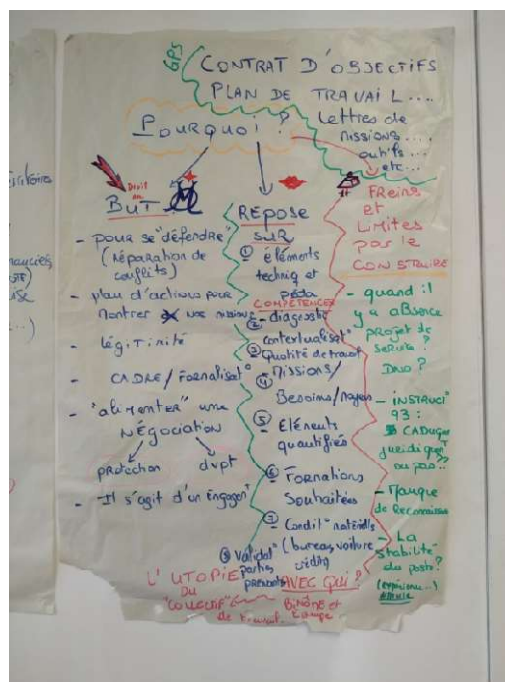 GPS
CONTRAT D'OBJECTIFS
PLAN DE TRAVAIL....
Lettres de
missions....
outils...
etc...
POURQUOI?
Droit au
BUT
- pour se "défendre"
(réparation de
conflits)
- plan d'actions pour
montrer nos missions
- légitimité
- CADRE / Formalisat°
- "alimenter" une
NÉGOCIATION
protection dvpt
- Il s'agit d'un engagemt
REPOSE
SUR
① éléments
techniq et
péda
COMPÉTENCES
② - diagnostic
contextualisat°
③ Qualité de travail
④ Missions /
Besoins / moyens
⑤ Eléments
quantifiés
⑥ Formations
Souhaitées
⑦ Condit° matérielles
(bureau, voiture
crédits
⑧ Validat°
parties
prenantes
FReins
et
Limites
pour le
CONSTRUIRE
- quand il
y a absence
projet de
service?
- INSTRUCt°
93:
CADUQUE
juridiquemt
ou pas..??
- Manque
de Reconnaiss
- La
stabilité
du poste?
L'UTOPIE
DU
"COLLECTIF"
de travail
AVEC QUI?
BINÔME et